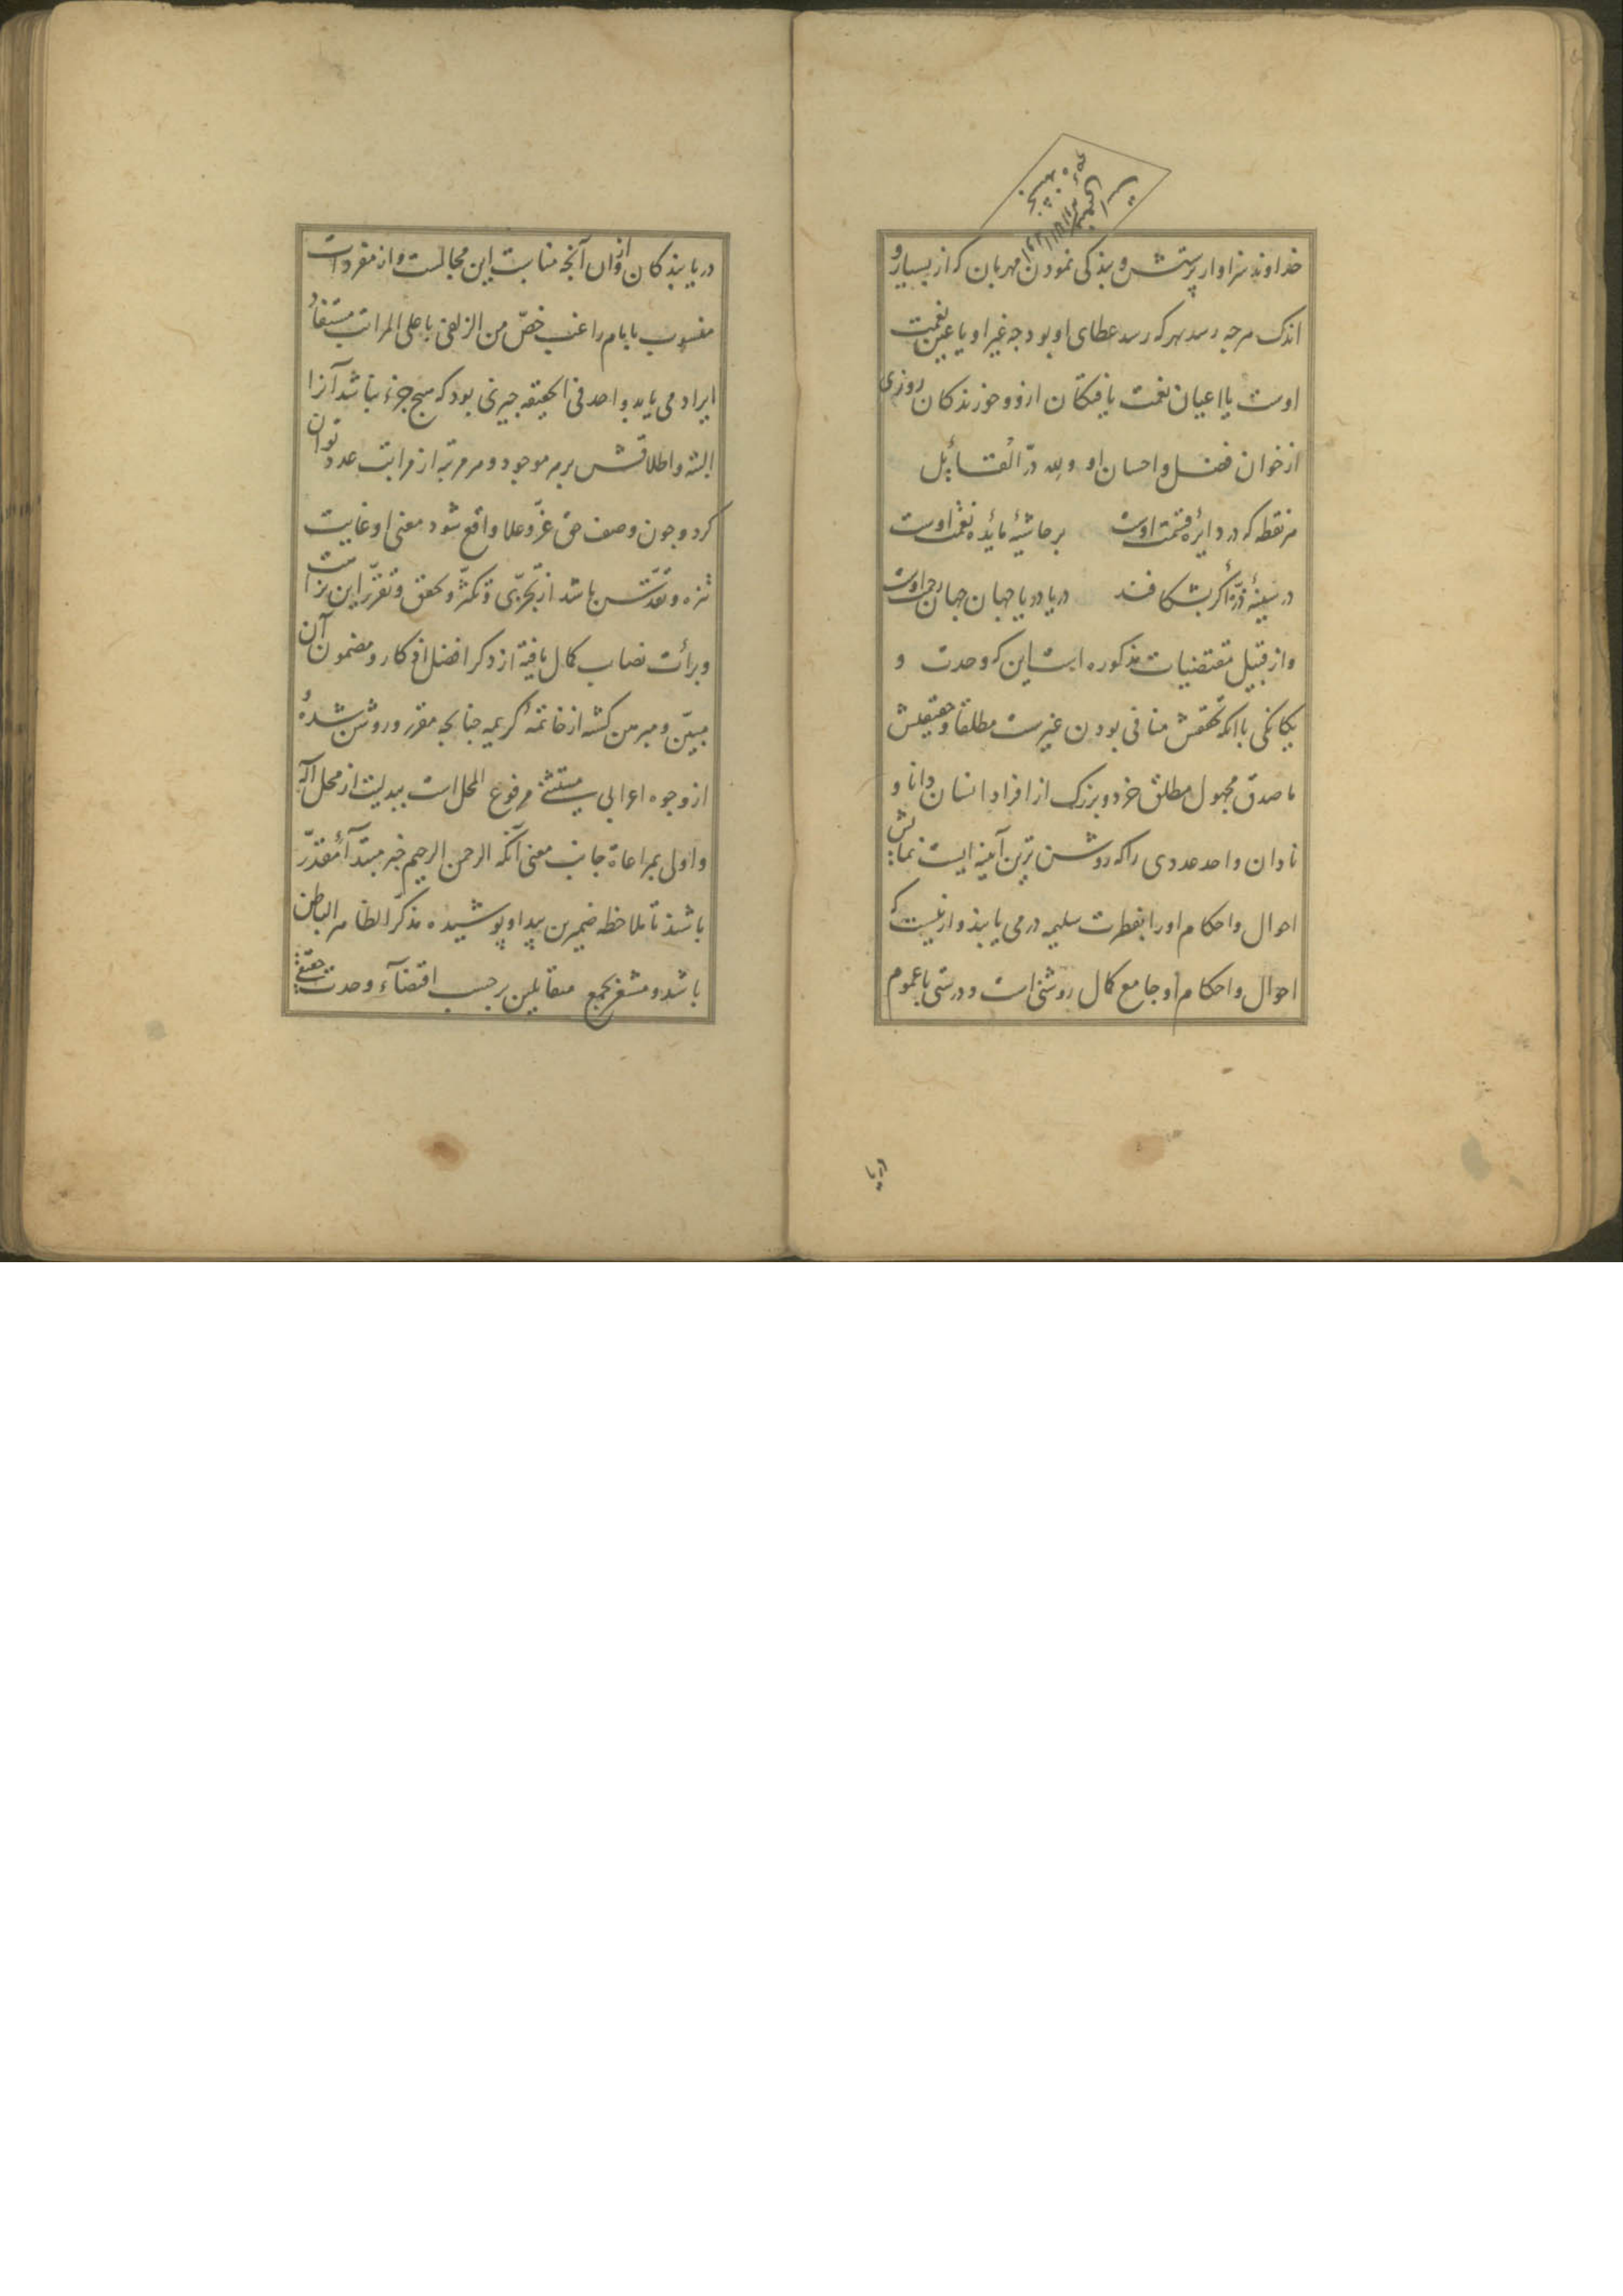 خداوند سزاوار پرستش و بندکی نمودن مهربان که از بسیار و
اندک هرجه رسد بهرکه رسد عطای او بود جه غیر او یا عین نعمت
اوست یا اعیان نعمت یافتکان ازو و خورندکان روزی
از خوان فضل و احسان او ولله درّ القائل
هر نقطه که در دایرهٔ قسمت اوست بر حاشیهٔ مائدهٔ نعمت اوست
در سینهٔ ذرّهٔ اکر بشکافند دریا دریا جهان جهان رحمت اوست
و از قبیل مقتضیات مذکوره است این که وحدت و
یکانکی با انکه تحققش منافی بودن غیرست مطلقا و حقیقیش
ما صدق مجهول مطلق خرد و بزرک از افراد انسان دانا و
نادان واحد عددی را که روشن ترین آینه ایست نمایش
احوال و احکام اورا بفطرت سلیمه درمی یابند و ازینست که
احوال و احکام او جامع کمال روشنی است و درستی با عموم
دریابندکان از آن آنجه مناسب این مجالست و از مفردات
منسوب بامام راغب خصّ من الزلفی باعلی المراتب مستفاد
ایراد می یابد واحد فی الحقیقه جیزی بود که هیج جزء نباشد آنرا
البته و اطلاقش بر هر موجود و هر مرتبه از مراتب عدد توان
کرد و جون وصف حق عزّ و علا واقع شود معنی او غایت
تنزه و تقدّس باشد از تجزّی و تکثّر و تحقق و تقرّر این نزاهت
و برأت نصاب کمال یافته از ذکر افضل اذکار و مضمون آن
مبیّن و مبرهن کشته از خاتمهٔ کریمه جنانجه مقرر و روشن شده
از وجوه اعرابی مستثنی مرفوع المحل است ببدلیت از محل اله
و اولی بمراعاة جانب معنی آنکه الرحمن الرحیم خبر مبتدآء مقدّر
باشند تا ملاحظه ضمیرین پیدا و پوشیده مذکّر الظاهر الباطن
باشد و مشعر بجمع متقابلین بر حسب اقتضآء وحدت حقیقی